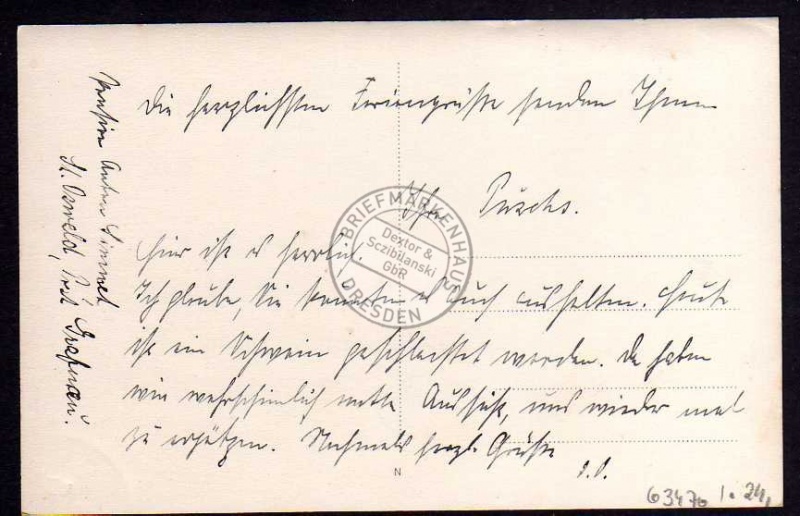 Die herzlichsten Feriengrüße senden Ihnen
Ihre Puschs.
Hier ist es herrlich.
Ich glaube, Sie könnten es auch aushalten. Heute
ist ein Schwein geschlachtet worden. Da haben
wir wahrscheinlich nette Aussicht, uns wieder mal
zu ergötzen. Nochmals herzl. Grüße
D. O.
Pension Anton Simmet
St. Oswald, Post Grafenau.
BRIEFMARKENHAUS
Dextor &
Sczibilanski
GbR
DRESDEN
N
63470 1. 24,